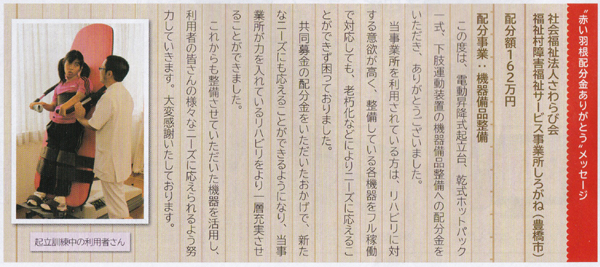 “赤い羽根配分金ありがとう”メッセージ
社会福祉法人さわらび会
福祉村障害福祉サービス事業所しろがね（豊橋市）
配分額162万円
配分事業：機器備品整備
この度は、電動昇降式起立台、乾式ホットパック
一式、下肢運動装置の機器備品整備への配分を
いただき、ありがとうございました。
当事業所を利用されている方は、リハビリに対
する意欲が高く、整備している各機器をフル稼働
で対応しても、老朽化などによりニーズに応えるこ
とができず困っておりました。
共同募金の配分金をいただいたおかげで、新た
なニーズにも応えることができるようになり、当事
業所が力を入れているリハビリをより一層充実させ
ることができました。
これからも整備させていただいた機器を活用し、
利用者の皆さんの様々なニーズに応えられるよう努
力していきます。大変感謝いたしております。
起立訓練中の利用者さん